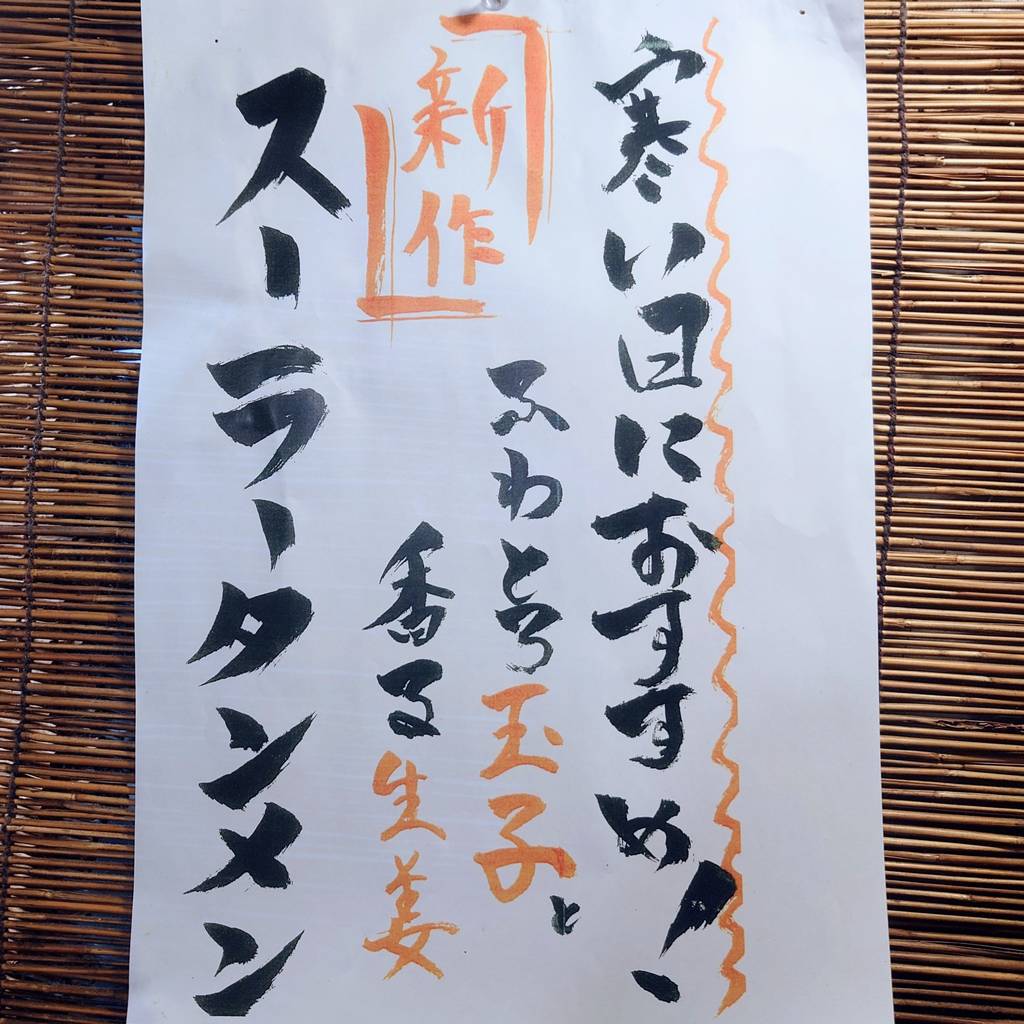 寒い日におすすめ!
新作
ふわとろ玉子と
香る生姜
スーラータンメン